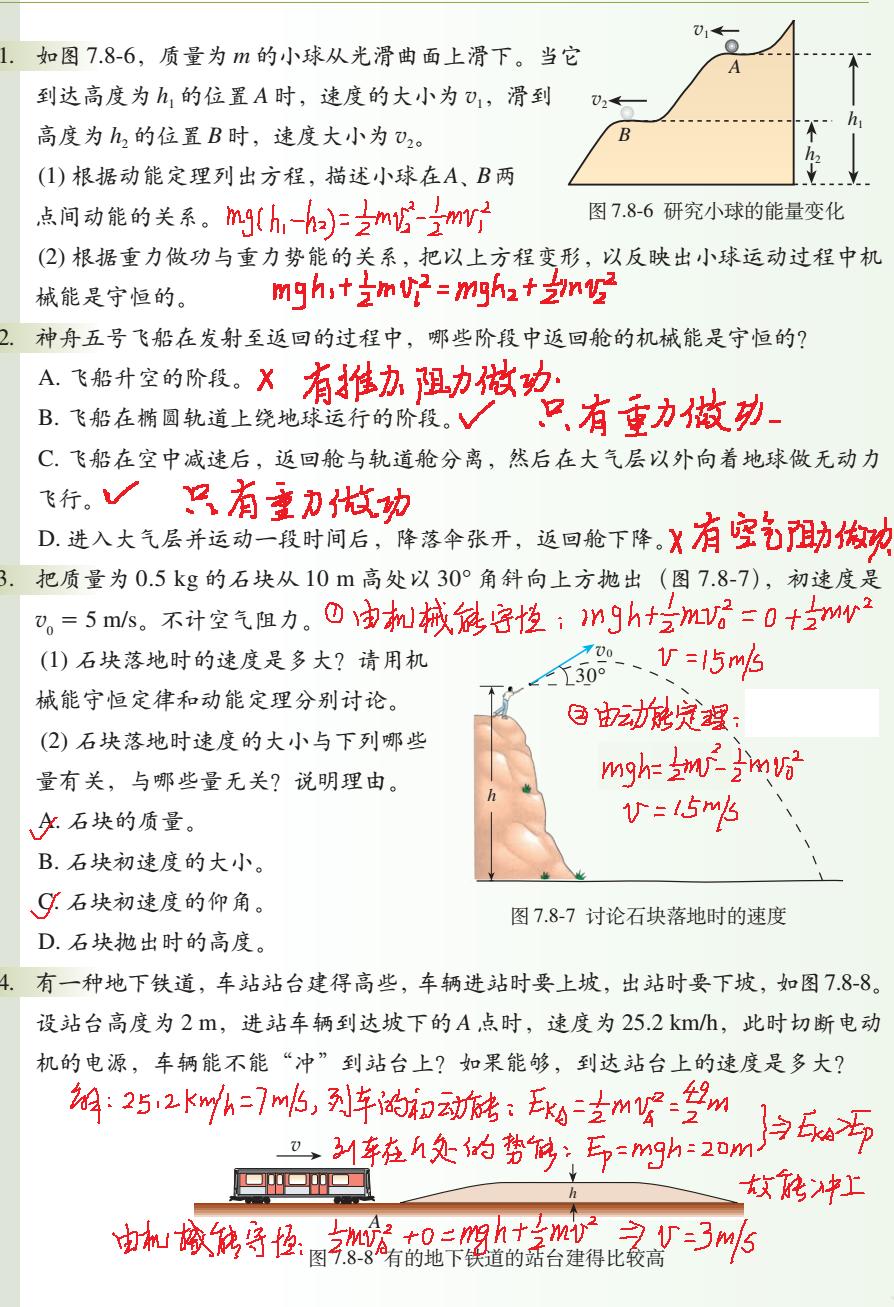 1. 如图 7.8-6，质量为 m 的小球从光滑曲面上滑下。当它
到达高度为 h₁ 的位置 A 时，速度的大小为 v₁，滑到
高度为 h₂ 的位置 B 时，速度大小为 v₂。
(1) 根据动能定理列出方程，描述小球在A、B两
点间动能的关系。 mg(h₁-h₂)=½mv₂²-½mv₁²
v₁
A
v₂
B
h₁
h₂
图 7.8-6 研究小球的能量变化
(2) 根据重力做功与重力势能的关系，把以上方程变形，以反映出小球运动过程中机
械能是守恒的。 mgh₁+½mv₁²=mgh₂+½mv₂²
2. 神舟五号飞船在发射至返回的过程中，哪些阶段中返回舱的机械能是守恒的？
A. 飞船升空的阶段。 × 有推力,阻力做功.
B. 飞船在椭圆轨道上绕地球运行的阶段。 ✓ 只有重力做功-
C. 飞船在空中减速后，返回舱与轨道舱分离，然后在大气层以外向着地球做无动力
飞行。 ✓ 只有重力做功
D. 进入大气层并运动一段时间后，降落伞张开，返回舱下降。 × 有空气阻力做功
3. 把质量为 0.5 kg 的石块从 10 m 高处以 30° 角斜向上方抛出（图 7.8-7），初速度是
v₀ = 5 m/s。不计空气阻力。 ①由机械能守恒：mgh+½mv₀²=0+½mv²
v=15m/s
(1) 石块落地时的速度是多大？请用机
械能守恒定律和动能定理分别讨论。
(2) 石块落地时速度的大小与下列哪些
量有关，与哪些量无关？说明理由。
✓A. 石块的质量。
B. 石块初速度的大小。
✓C. 石块初速度的仰角。
D. 石块抛出时的高度。
v₀
30°
②由动能定理：
mgh=½mv²-½mv₀²
v=15m/s
h
图 7.8-7 讨论石块落地时的速度
4. 有一种地下铁道，车站站台建得高些，车辆进站时要上坡，出站时要下坡，如图 7.8-8。
设站台高度为 2 m，进站车辆到达坡下的 A 点时，速度为 25.2 km/h，此时切断电动
机的电源，车辆能不能“冲”到站台上？如果能够，到达站台上的速度是多大？
解：25.2km/h=7m/s, 列车的初动能：E_kA=½mv_A²=49/2 m
列车在h处的势能：E_p=mgh=20m }⇒E_kA>E_p
故能冲上
v
h
A
由机械能守恒：½mv_A²+0=mgh+½mv² ⇒ v=3m/s
图 7.8-8 有的地下铁道的站台建得比较高